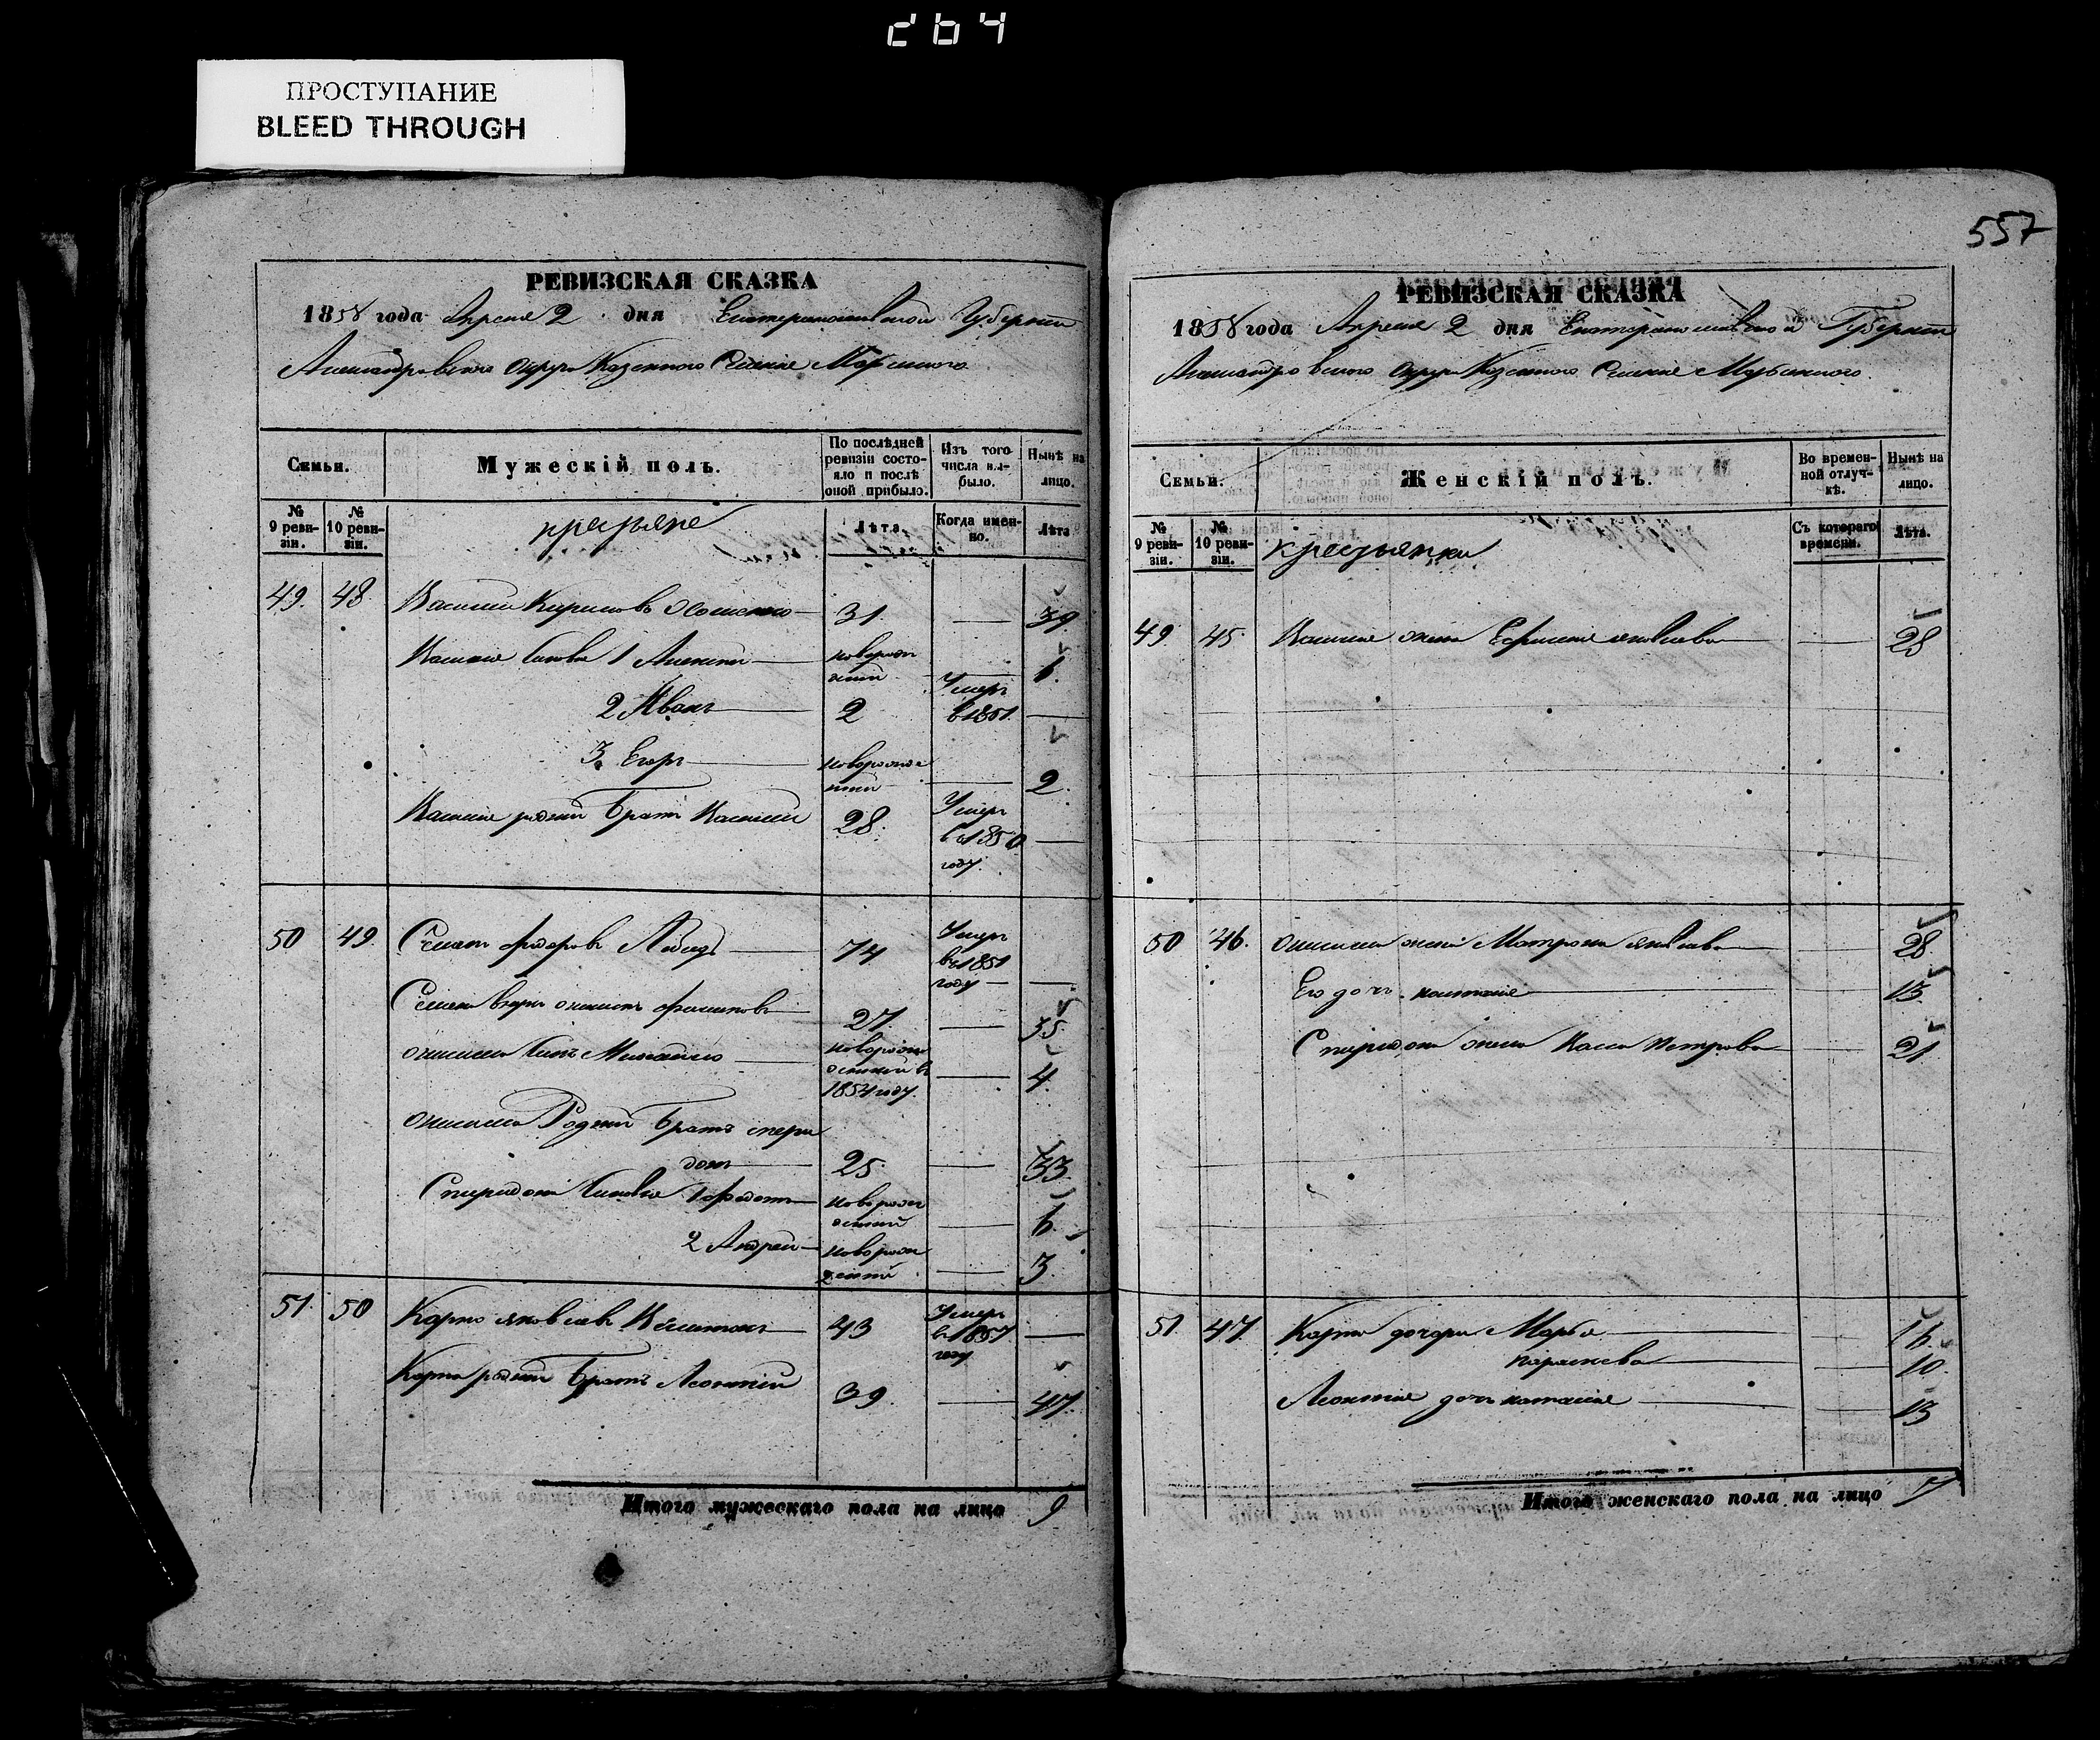 264
ПРОСТУПАНИЕ
BLEED THROUGH
557
РЕВИЗСКАЯ СКАЗКА
1858 года Апреля 2 дня Екатеринославской Губернии
Александровского округа Казенного Селения Марьинского
Семьи.
Мужескій полъ.
По послѣдней ревизіи состояло и послѣ оной прибыло.
Изъ того числа выбыло.
Нынѣ на лицо.
№ 9 ревизіи.
№ 10 ревизіи.
крестьяне
Лѣта.
Когда именно.
Лѣта
49. 48. Василий Кирилов 31. — 39.
Василия сыновья 1 Алексей новорожденный — 6.
2 Иван 2 Умер в 1851. —
3. Егор новорожденный — 2.
Василия родной брат Василий 28. Умер в 1850 году. —
50 49. Семен Федоров Лебедь 74 Умер в 1851 году —
Семен 27. — 35.
сын Михайло новорожденный в 1854 году. — 4.
Родной брат Спиридон 25. — 33.
Спиридона сыновья 1 Федот новорожденный — 6.
2 Андрей новорожденный — 3.
51. 50 Карпо Яковлев 43 Умер в 1857 году —
Карпа родной брат Леонтий 39. — 47.
Итого мужескаго пола на лицо 9
РЕВИЗСКАЯ СКАЗКА
1858 года Апреля 2 дня Екатеринославской Губернии
Александровского округа Казенного Селения Марьинского.
Семьи.
Женскій полъ.
Во временной отлучкѣ.
Нынѣ на лицо.
№ 9 ревизіи.
№ 10 ревизіи.
крестьянки
Съ котораго времени.
Лѣта.
49. 45. Василия жена Ефросиния Яковлева — 28
50 46. жена Матрона Яковлева — 28.
Его дочь Наталия — 13.
Спиридона жена Петрова — 21
51. 47. Карпа дочери Марья — 16.
Парасковья — 10.
Леонтия дочь Наталия — 13
Итого женскаго пола на лицо 7